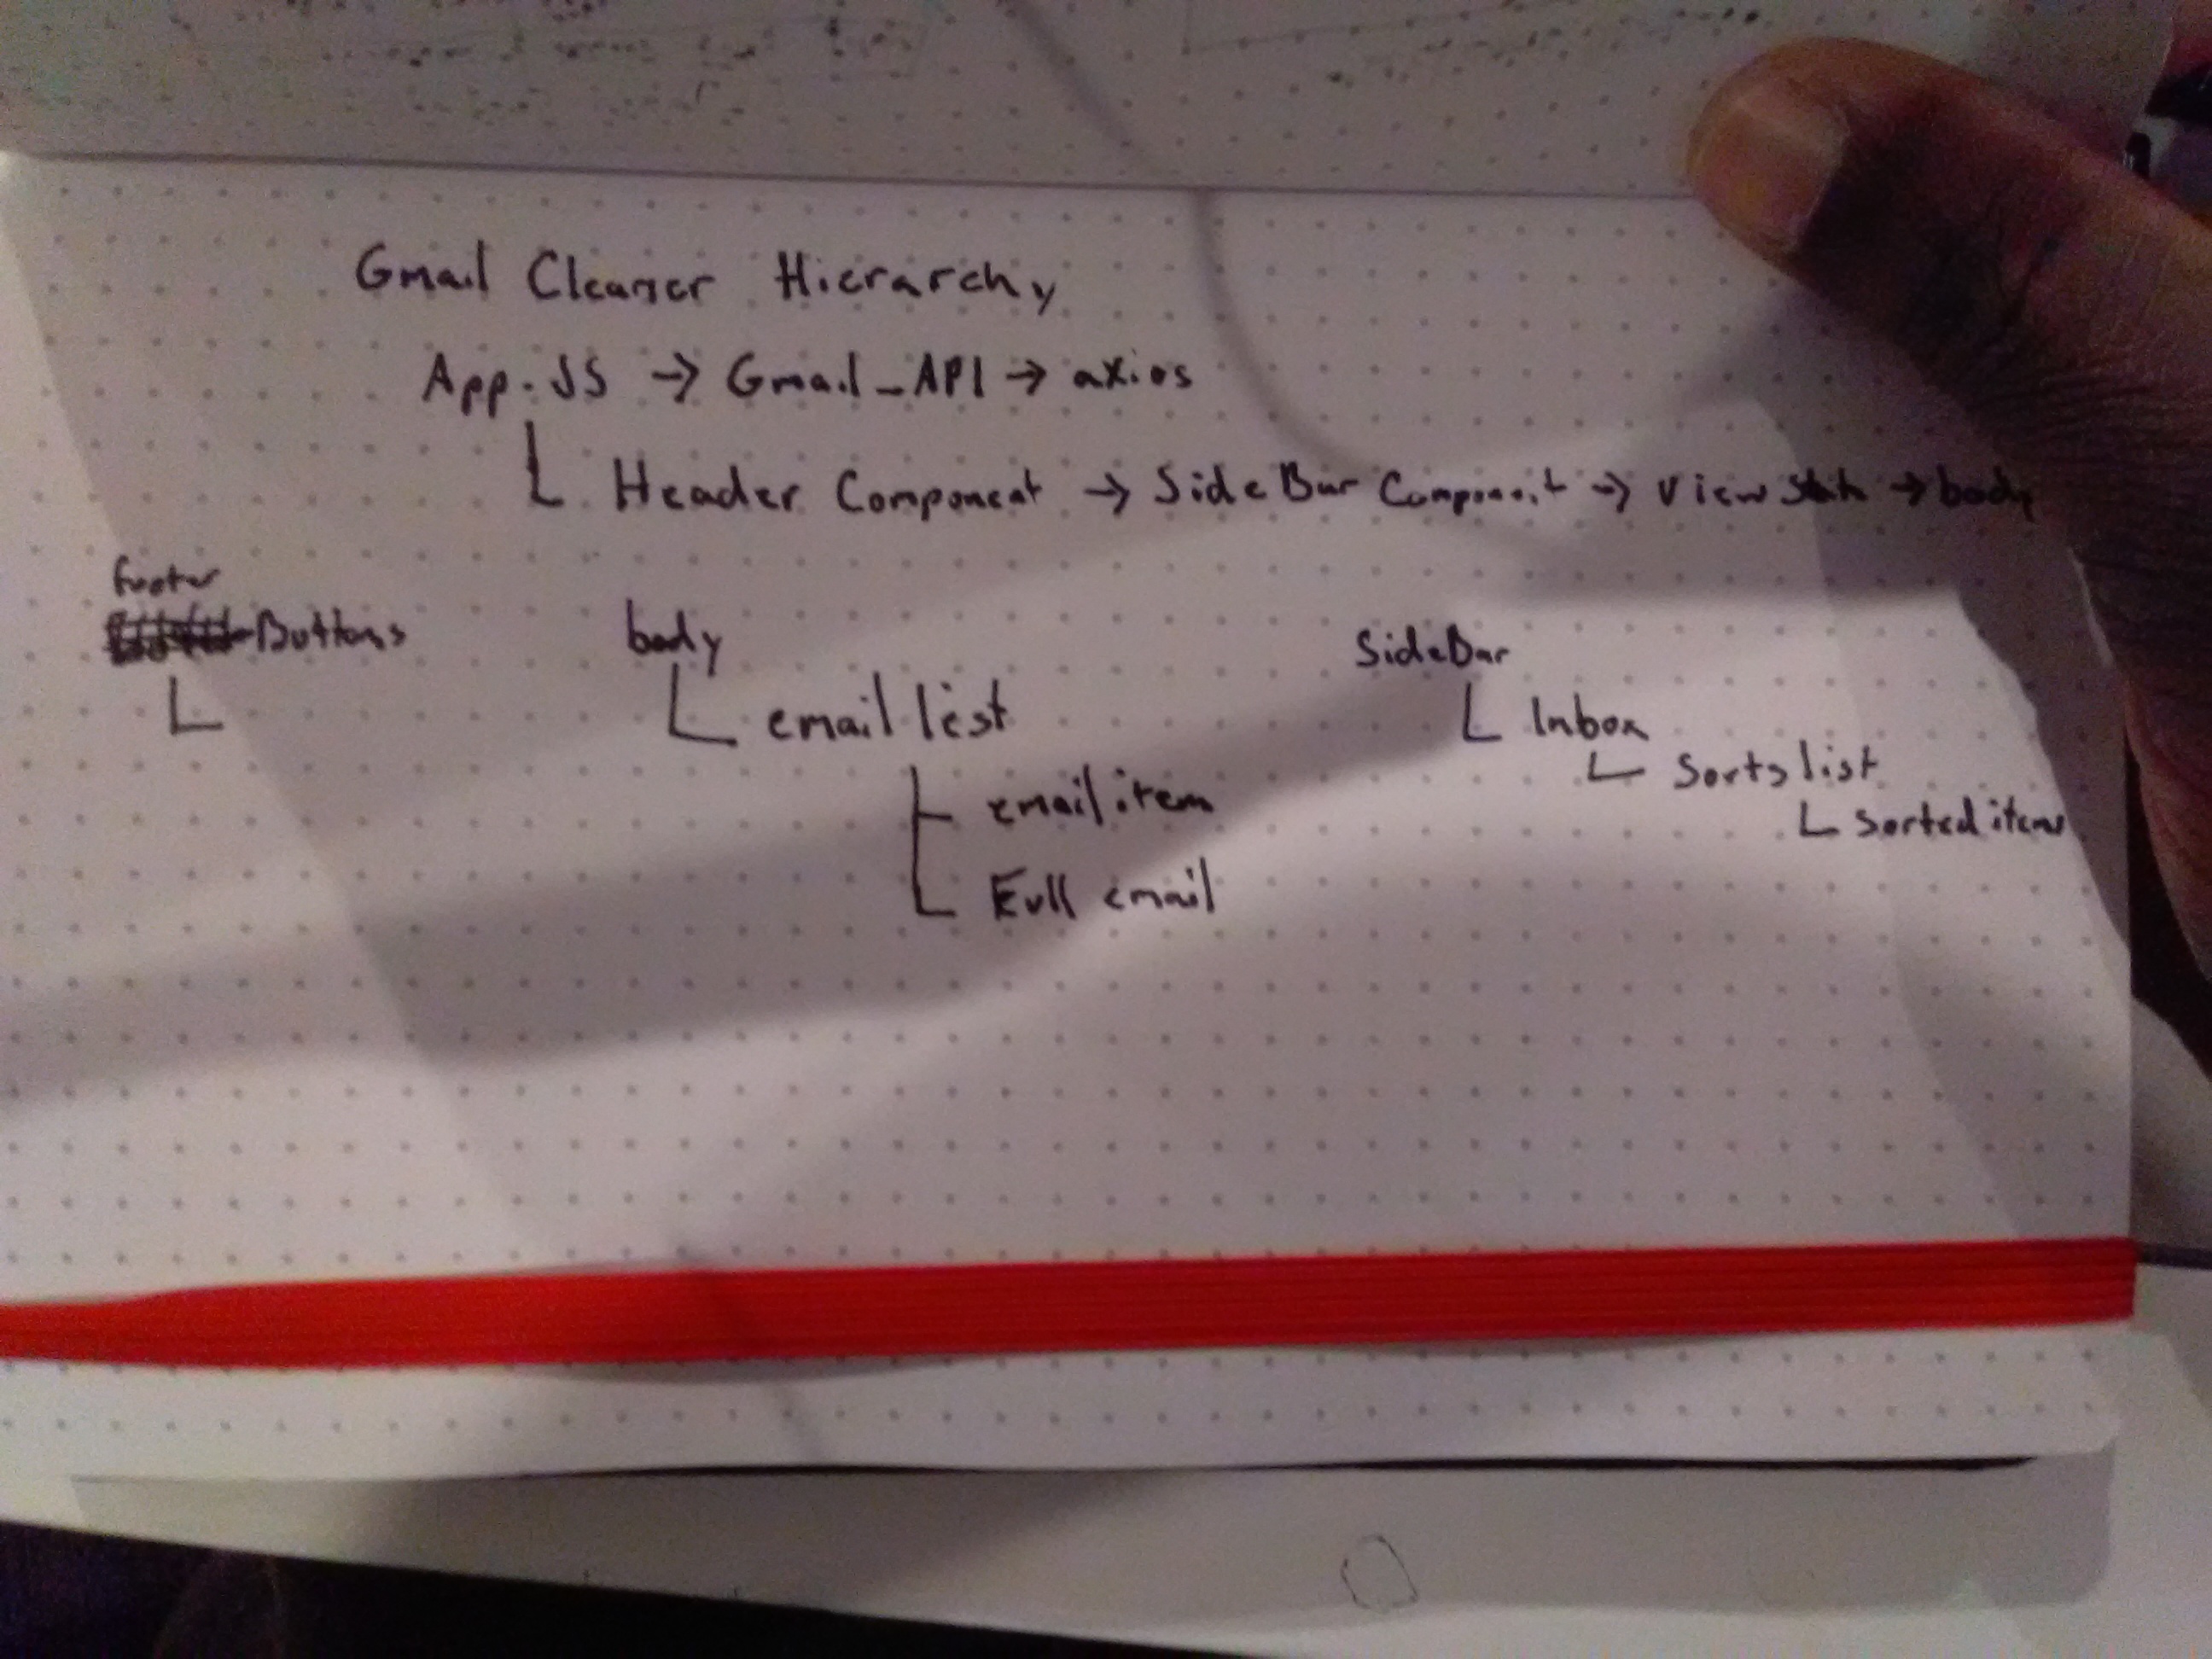 Gmail Cleaner Hierarchy
App.JS → Gmail_API → axios
Header Component → SideBar Component → View → body
footer
Buttons
body
email list
email item
Full email
SideBar
Inbox
Sorts list
Sorted items